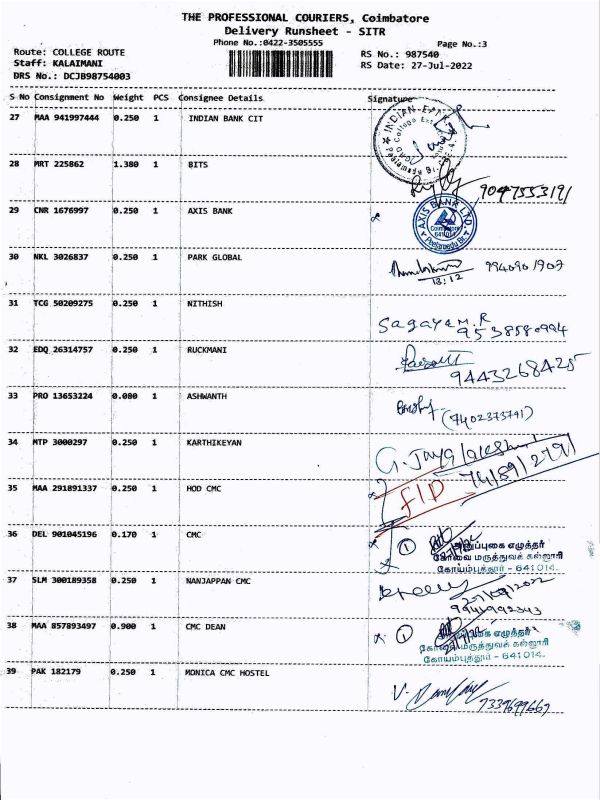 THE PROFESSIONAL COURIERS, Coimbatore
Delivery Runsheet - SITR
Phone No.:0422-3505555
Page No.:3
Route: COLLEGE ROUTE
RS No.: 987540
Staff: KALAIMANI
RS Date: 27-Jul-2022
DRS No.: DCJB98754003
S No Consignment No Weight PCS Consignee Details Signature
27 MAA 941997444 0.250 1 INDIAN BANK CIT
28 MRT 225862 1.380 1 BITS
9047553191
29 CNR 1676997 0.250 1 AXIS BANK
AXIS BANK LTD.
Coimbatore
641 014
Peelamedu Br.
30 NKL 3026837 0.250 1 PARK GLOBAL
9940901907
18:12
31 TCG 50209275 0.250 1 NITHISH
Sagayam.R
9538580994
32 EDQ 26314757 0.250 1 RUCKMANI
9443268425
33 PRO 13653224 0.080 1 ASHWANTH
(7402373791)
34 MTP 3000297 0.250 1 KARTHIKEYAN
35 MAA 291891337 0.250 1 HOD CMC
F/D
36 DEL 901045196 0.170 1 CMC
1
அனுப்புகை எழுத்தர்
கோவை மருத்துவக் கல்லூரி
கோயம்புத்தூர் - 641 014.
37 SLM 300189358 0.250 1 NANJAPPAN CMC
38 MAA 857893497 0.900 1 CMC DEAN
1
எழுத்தர்
கோவை மருத்துவக் கல்லூரி
கோயம்புத்தூர் - 641 014.
39 PAK 182179 0.250 1 MONICA CMC HOSTEL
7339699667